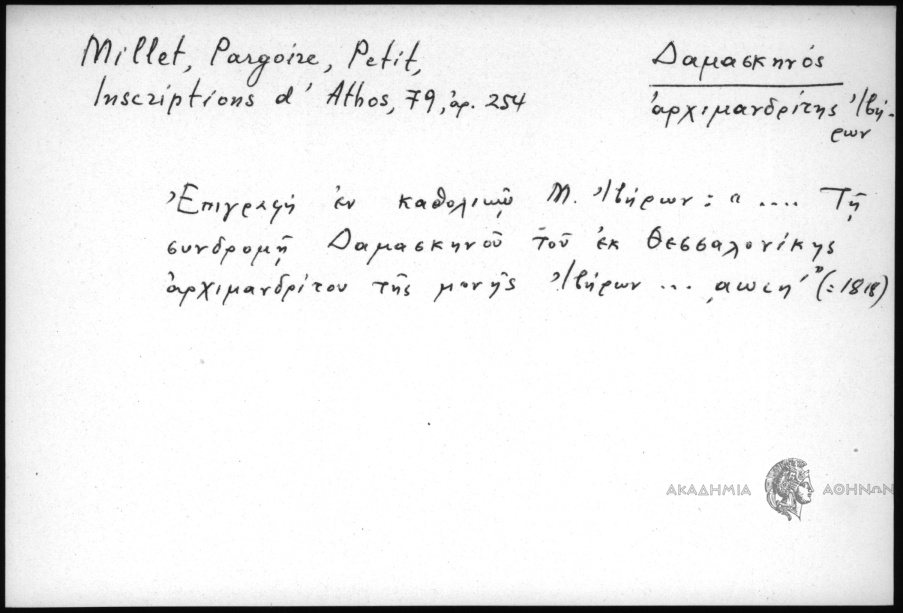 Millet, Pargoire, Petit,
Inscriptions d' Athos, 79, ἀρ. 254
Δαμασκηνός
ἀρχιμανδρίτης Ἰβή-
ρων
Ἐπιγραφή ἐν καθολικῷ Μ. Ἰβήρων: " .... Τῇ
συνδρομῇ Δαμασκηνοῦ τοῦ ἐκ Θεσσαλονίκης
ἀρχιμανδρίτου τῆς μονῆς Ἰβήρων ... ͵αωιη´" (=1818)
ΑΚΑΔΗΜΙΑ ΑΘΗΝΩΝ